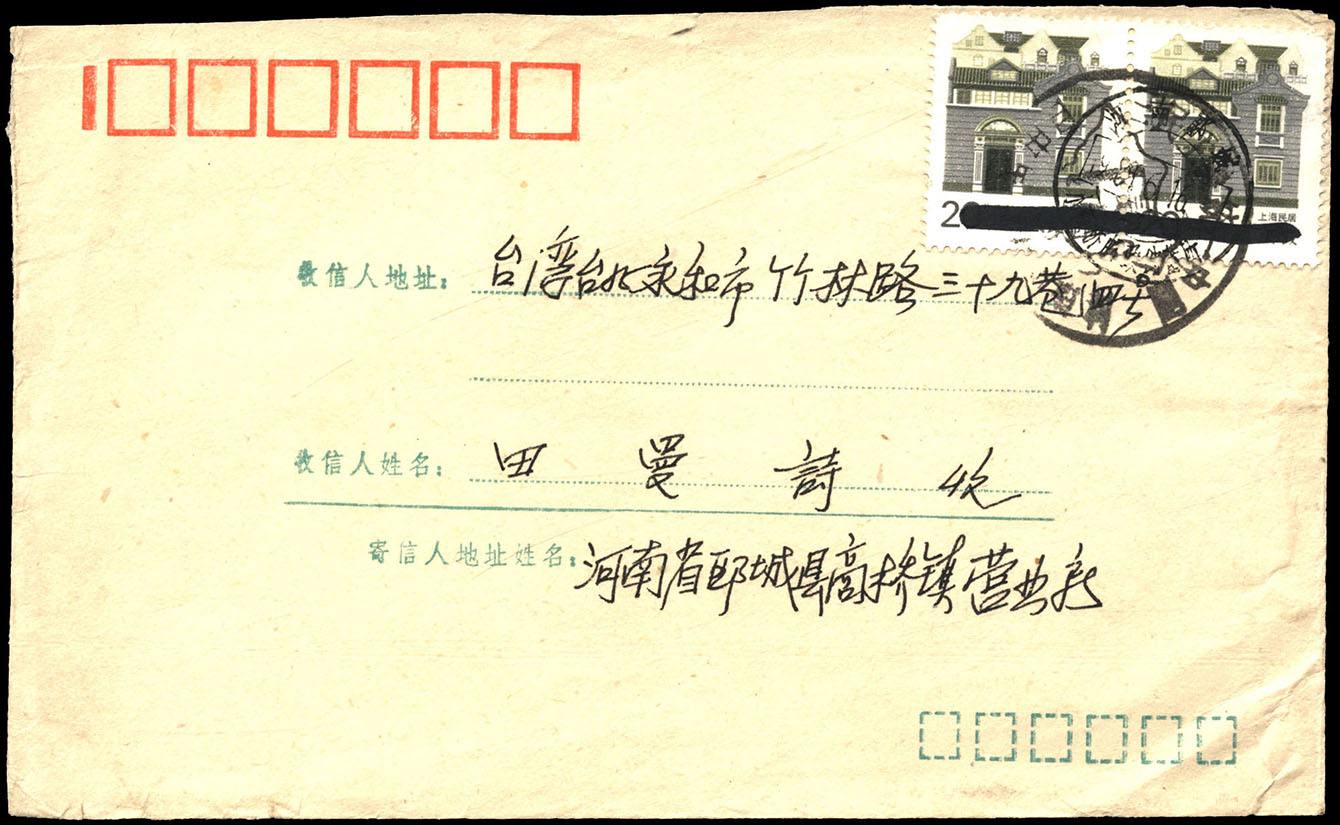 20
上海民居
收信人地址: 台湾台北永和市竹林路三十九巷
收信人姓名: 田曼詩 收
寄信人地址姓名: 河南省郾城县高桥镇营业所